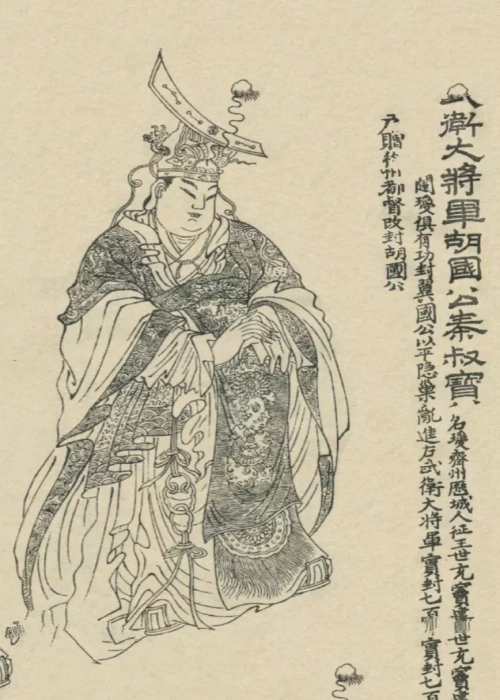 武衛大將軍胡國公秦叔寶
名瓊齊州歷城人征王世充竇建世充竇
闥瓊俱有功封翼國公以平隐巢亂進右武衛大將軍實封七百 實封七百
戶贈徐州都督改封胡國公